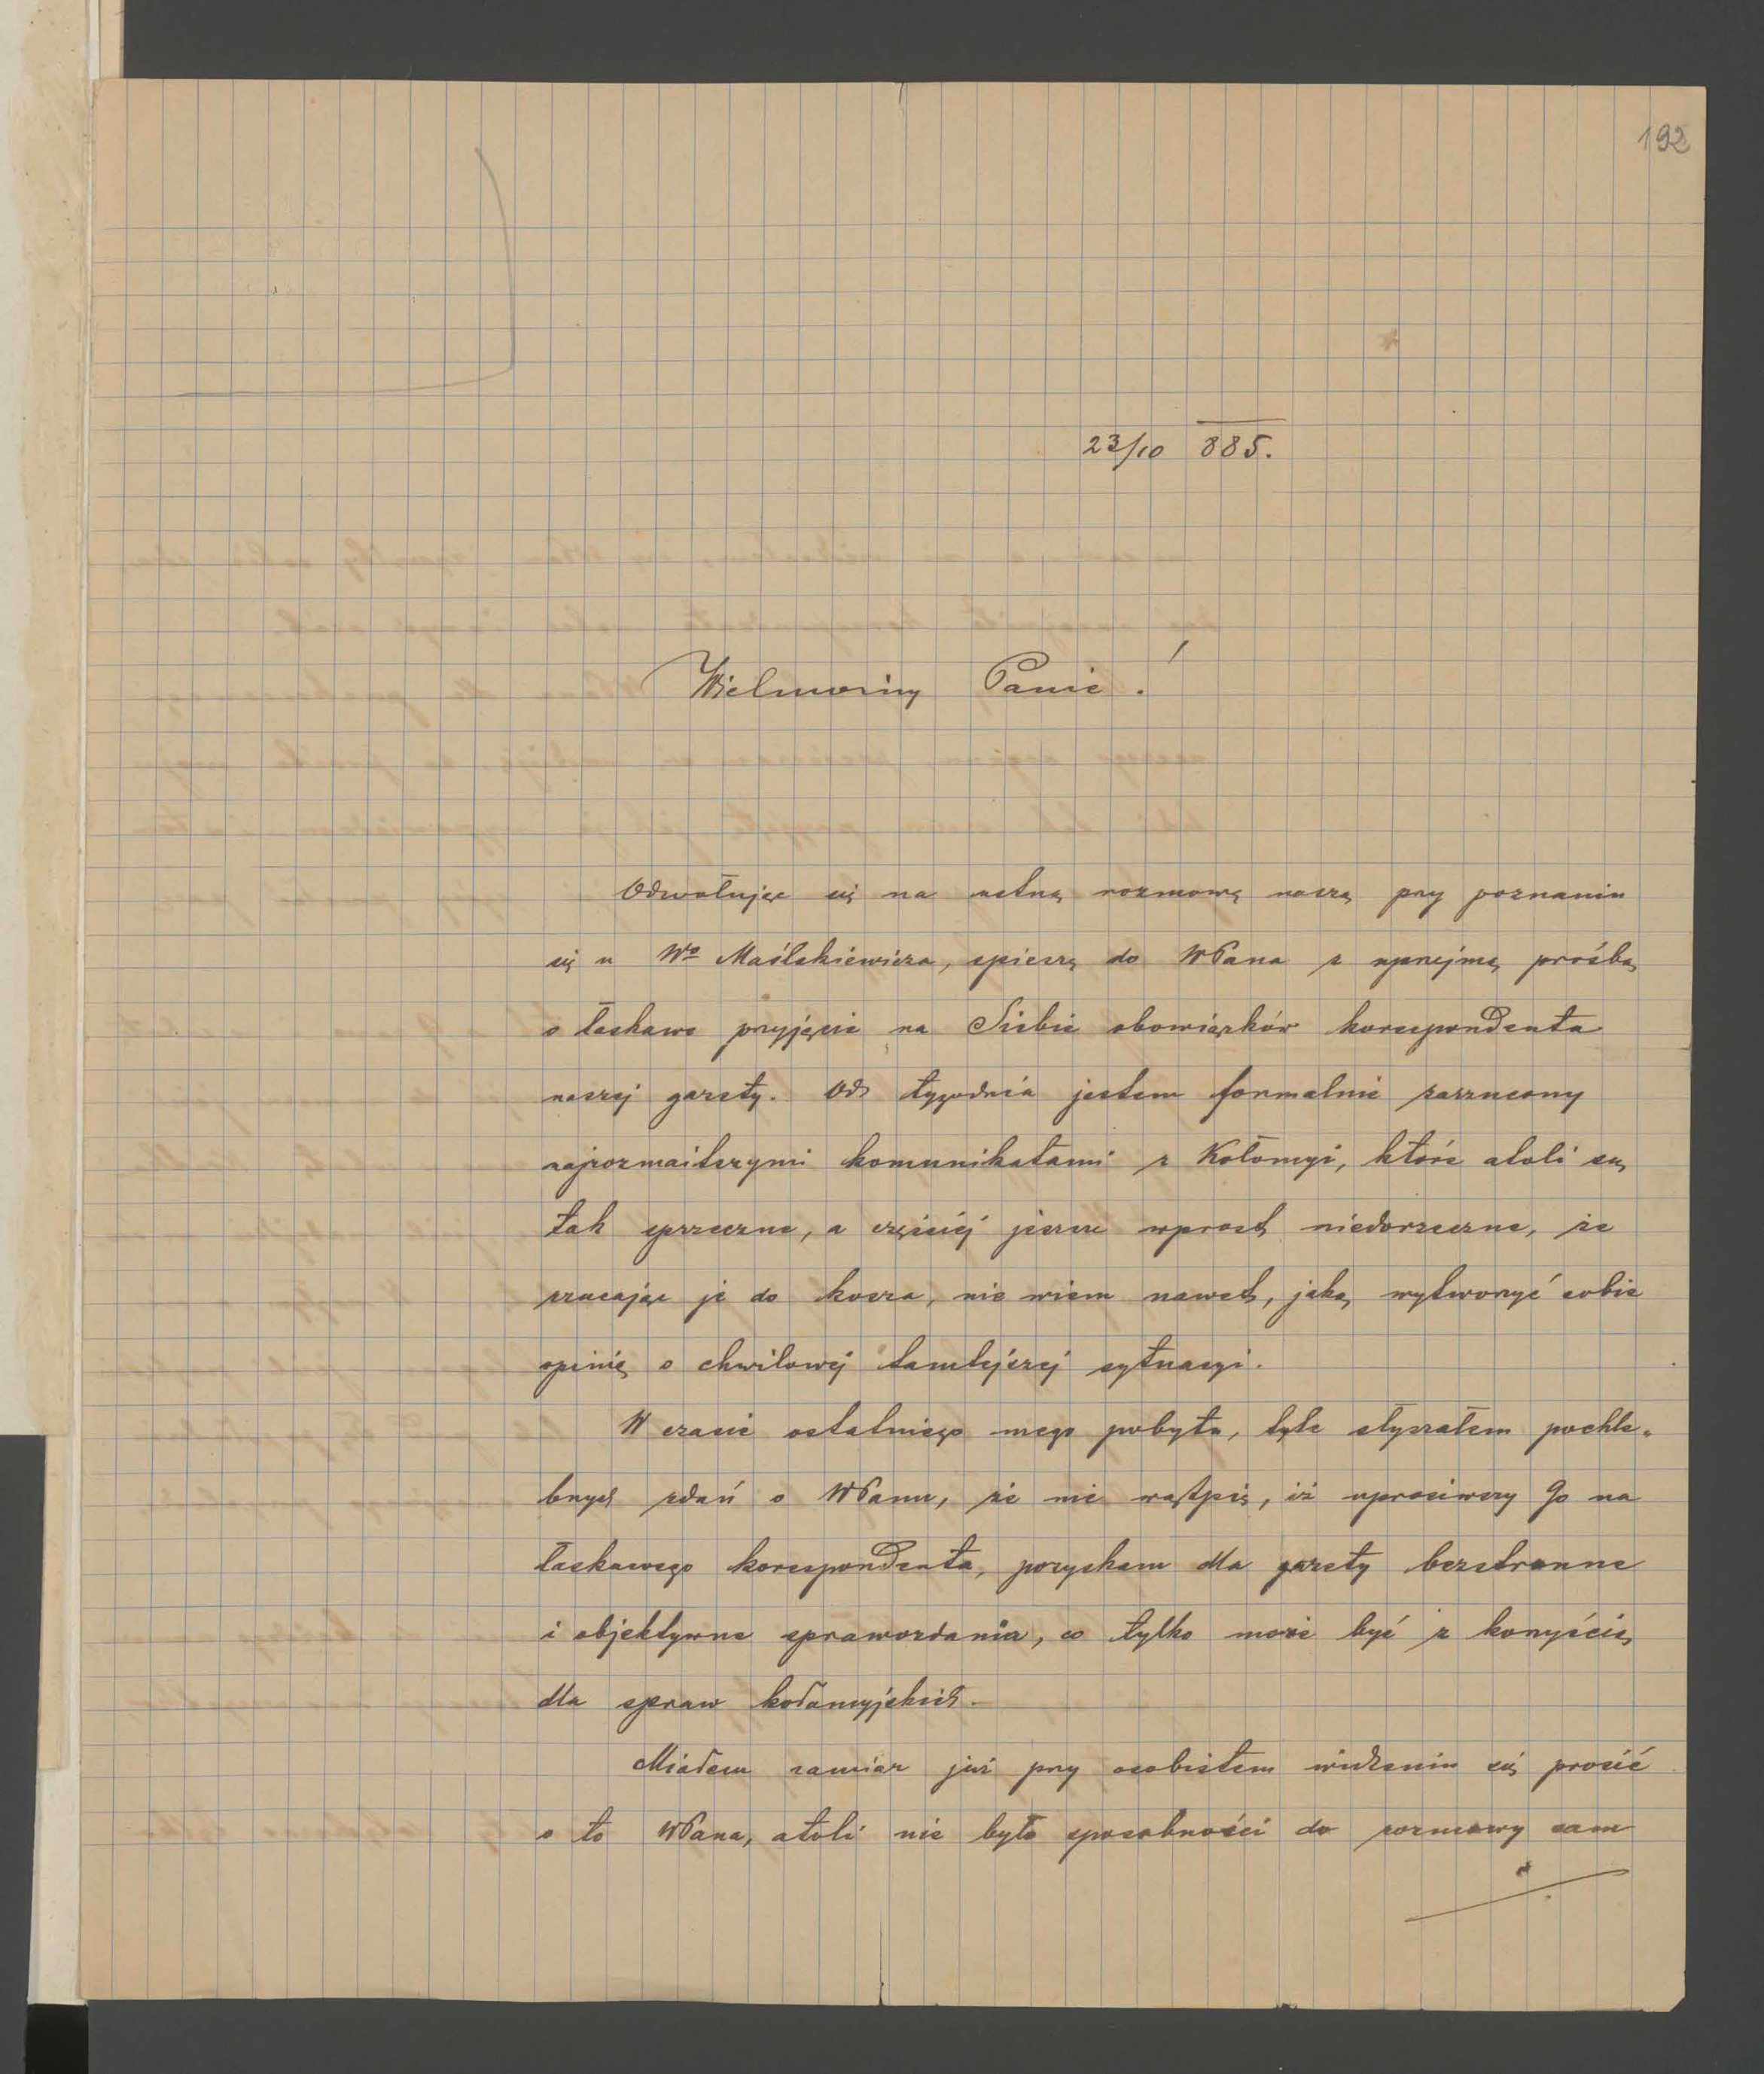 192
23/10 885.
Wielmożny Panie!
Odwołując się na ustną rozmowę naszą przy poznaniu
się u Wo Maślakiewicza, spieszę do WPana z uprzejmą prośbą
o łaskawe przyjęcie na Siebie obowiązków korespondenta
naszej gazety. Od tygodnia jestem formalnie zarzucony
najrozmaitszymi komunikatami z Kołomyi, które atoli są
tak sprzeczne, a częściej jeszcze wprost niedorzeczne, że
rzucając je do kosza, nie wiem nawet, jaką wytworzyć sobie
opinię o chwilowej tamtejszej sytuacyi.
W czasie ostatniego mego pobytu, tyle słyszałem pochle-
bnych zdań o WPanu, że nie wątpię, iż uprosiwszy Go na
łaskawego korespondenta, pozyskam dla gazety bezstronne
i objektywne sprawozdania, co tylko może być z korzyścią
dla spraw kołomyjskich.
Miałem zamiar już przy osobistem widzeniu się prosić
o to WPana, atoli nie było sposobności do rozmowy sam